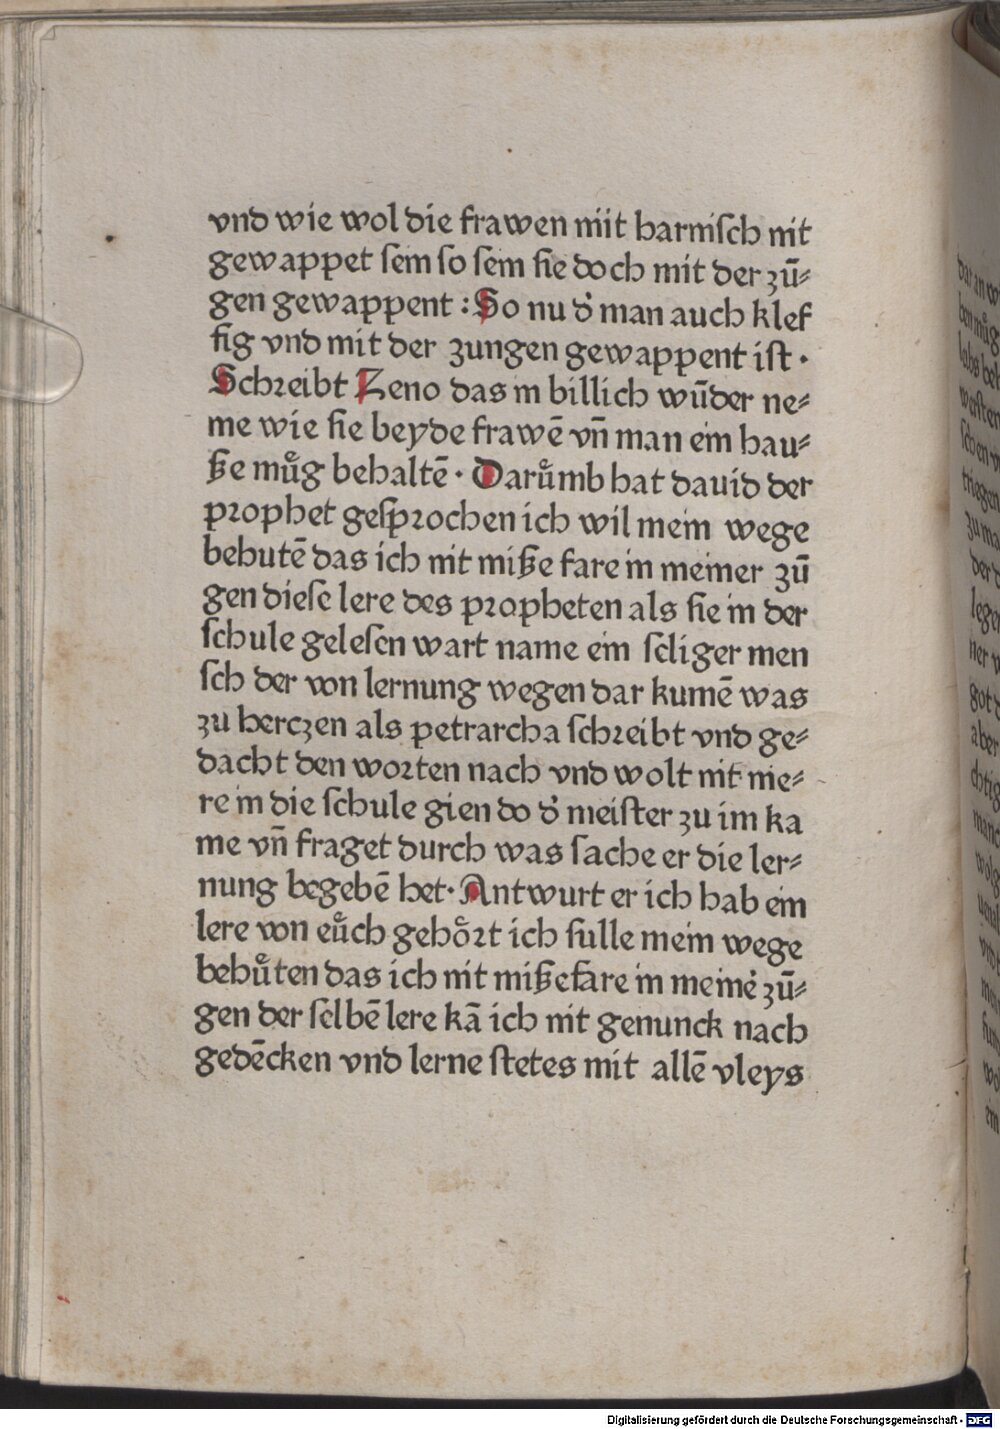 vnd wie wol die frawen mit harnisch nit
gewappet sein so sein sie doch mit der zū⸗
gen gewappent : So nu d̓ man auch klef
fig vnd mit der zungen gewappent ist ·
Schreibt Zeno das in billich wūder ne⸗
me wie sie beyde frawē vn̄ man ein hau⸗
ße muͤg behaltē · Daruͤmb hat dauid der
prophet gesprochen ich wil mein wege
behutē das ich nit miße fare in meiner zū
gen diese lere des propheten als sie in der
schule gelesen wart name ein seliger men
sch der von lernung wegen dar kumē was
zu herczen als petrarcha schreibt vnd ge⸗
dacht den worten nach vnd wolt nit me⸗
re in die schule gien do d̓ meister zu im ka
me vn̄ fraget durch was sache er die ler⸗
nung begebē het· Antwurt er ich hab ein
lere von euͤch gehoͤrt ich sulle mein wege
behuͤten das ich nit mißefare in meine̓ zū⸗
gen der selbē lere kā ich nit genunck nach
gedēcken vnd lerne stetes mit allē vleys
Digitalisierung gefördert durch die Deutsche Forschungsgemeinschaft - DFG